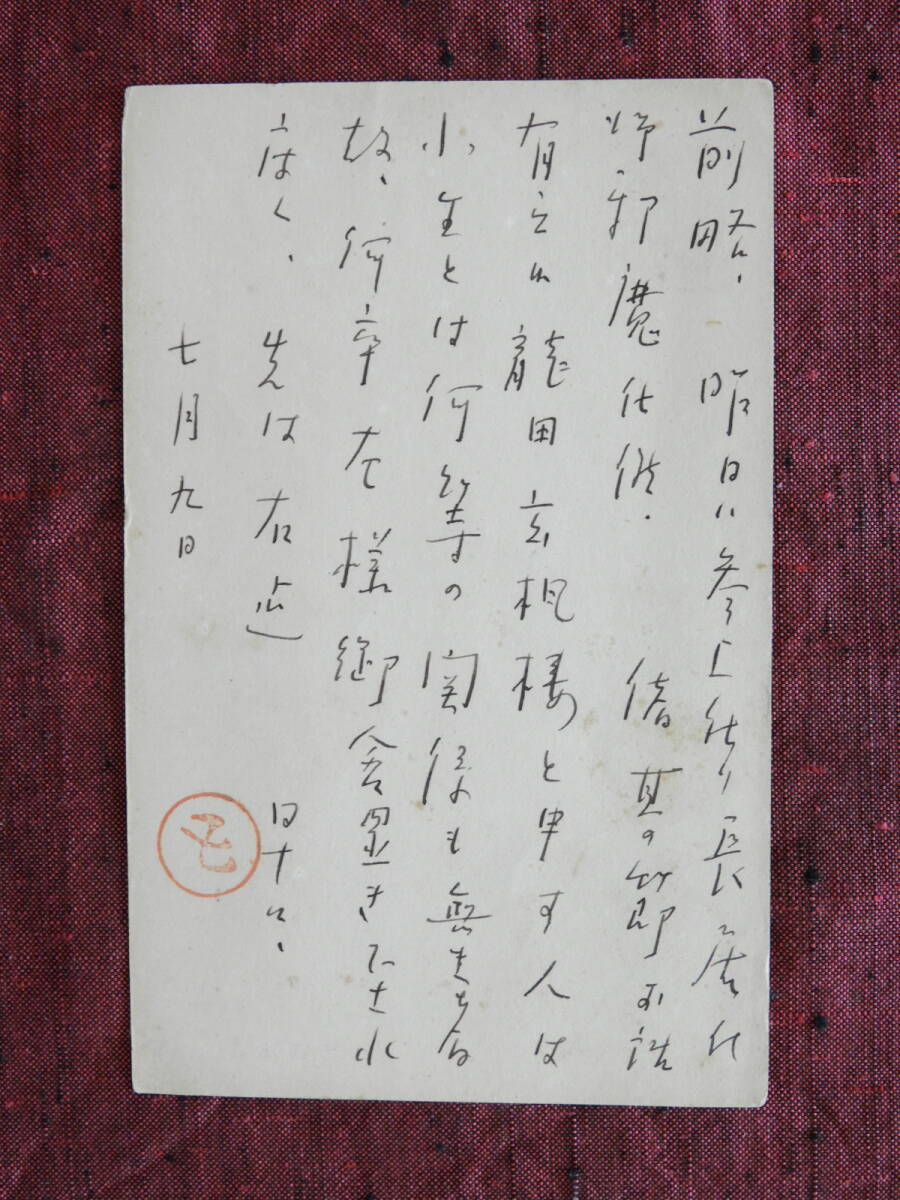 前略、昨日ハ参上仕り長居仕
御邪魔仕候。偖其の節お話
有之候龍田京相様と申す人は
小生とは何等の関係も無き者
故、何卒左様御含置き下され
度く、先は右迄
早々、
七月九日